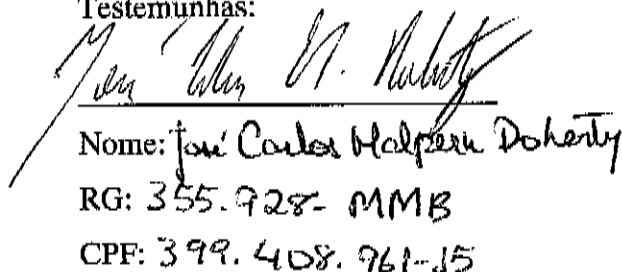 Testemunhas:
Nome: José Carlos Halpern Doherty
RG: 355.928- MMB
CPF: 399.408.961-15